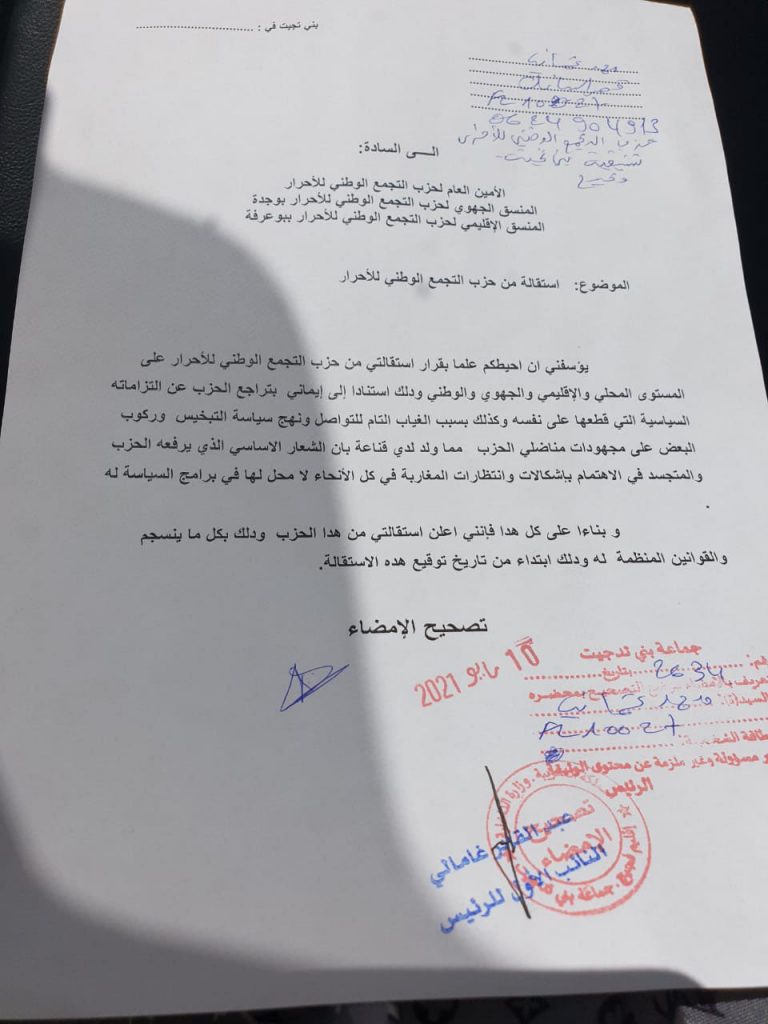 بني تجيت في : ........................................
0624904913
حزب التجمع الوطني للأحرار
الـــى السادة:
الأمين العام لحزب التجمع الوطني للأحرار
المنسق الجهوي لحزب التجمع الوطني للأحرار بوجدة
المنسق الإقليمي لحزب التجمع الوطني للأحرار ببوعرفة
الموضوع: استقالة من حزب التجمع الوطني للأحرار
يؤسفني ان احيطكم علما بقرار استقالتي من حزب التجمع الوطني للأحرار على
المستوى المحلي والإقليمي والجهوي والوطني ودلك استنادا إلى إيماني بتراجع الحزب عن التزاماته
السياسية التي قطعها على نفسه وكذلك بسبب الغياب التام للتواصل ونهج سياسة التبخيس وركوب
البعض على مجهودات مناضلي الحزب مما ولد لدي قناعة بان الشعار الاساسي الذي يرفعه الحزب
والمتجسد في الاهتمام بإشكالات وانتظارات المغاربة في كل الأنحاء لا محل لها في برامج السياسة له
.
و بناءا على كل هدا فإنني اعلن استقالتي من هدا الحزب ودلك بكل ما ينسجم
والقوانين المنظمة له ودلك ابتداء من تاريخ توقيع هده الاستقالة.
تصحيح الإمضاء
جماعة بني تدجيت
10 مايو 2021
رقم: 2634 بتاريخ
السيد(ة):
بطاقة
مسؤولة وغير ملزمة عن محتوى الوثيقة
الرئيس
تصحيح
الإمضاء
عبد القادر
النائب الاول للرئيس